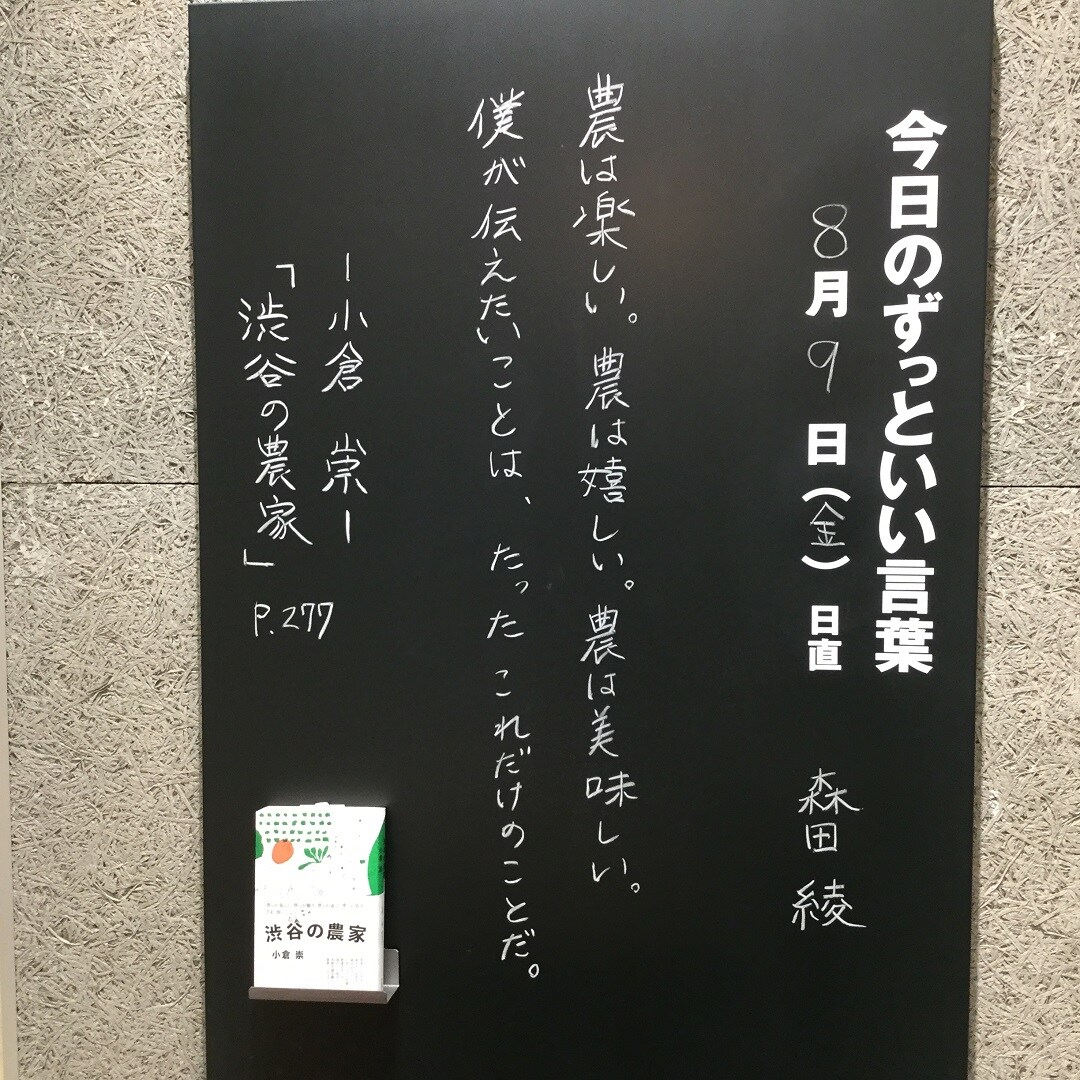 今日のずっといい言葉
8月9日(金) 日直 森田 綾
農は楽しい。農は嬉しい。農は美味しい。
僕が伝えたいことは、たったこれだけのことだ。
ー小倉 崇ー
「渋谷の農家」P.277
渋谷の農家
小倉 崇